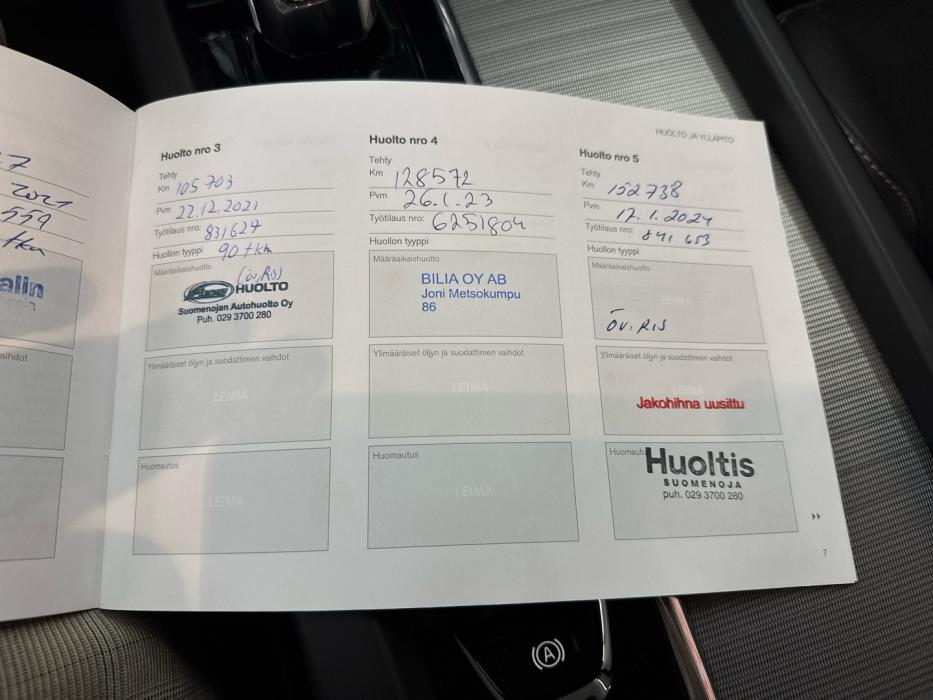 7
2021
559
tkm
alin
aihdot
HUOLTO JA YLLÄPITO
Huolto nro 3
Tehty
Km 105 703
Pvm 22.12.2021
Työtilaus nro: 831627
Huollon tyyppi 90 tkm
Määräaikaishuolto
(öv, RS)
HUOLTO
Suomenojan Autohuolto Oy
Puh. 029 3700 280
Ylimääräiset öljyn ja suodattimen vaihdot
LEIMA
Huomautus
LEIMA
Huolto nro 4
Tehty
Km 128572
Pvm 26.1.23
Työtilaus nro: 6251804
Huollon tyyppi
Määräaikaishuolto
BILIA OY AB
Joni Metsokumpu
86
Ylimääräiset öljyn ja suodattimen vaihdot
LEIMA
Huomautus
LEIMA
Huolto nro 5
Tehty
Km 152 738
Pvm 17.1.2024
Työtilaus nro: 841 653
Huollon tyyppi
Määräaikaishuolto
LEIMA
ÖV, RIS
Ylimääräiset öljyn ja suodattimen vaihdot
LEIMA
Jakohihna uusittu
Huomautus
Huoltis
SUOMENOJA
puh. 029 3700 280
7
A